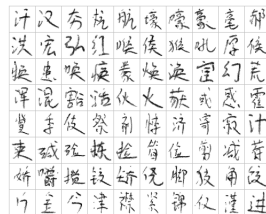 汗 汉 夯 杭 航 壕 嚎 豪 毫 郝
洪 宏 弘 红 喉 侯 猴 吼 厚 候
患 唤 痪 豢 焕 涣 宦 幻 荒
浑 混 豁 活 伙 火 获 或 惑 霍
季 伎 祭 剂 悸 济 寄 寂 计
柬 碱 拣 捡 简 俭 剪 减 荐
娇 嚼 搅 铰 矫 侥 脚 狡 角 饺
巾 今 津 襟 紧 锦 仅 谨 进